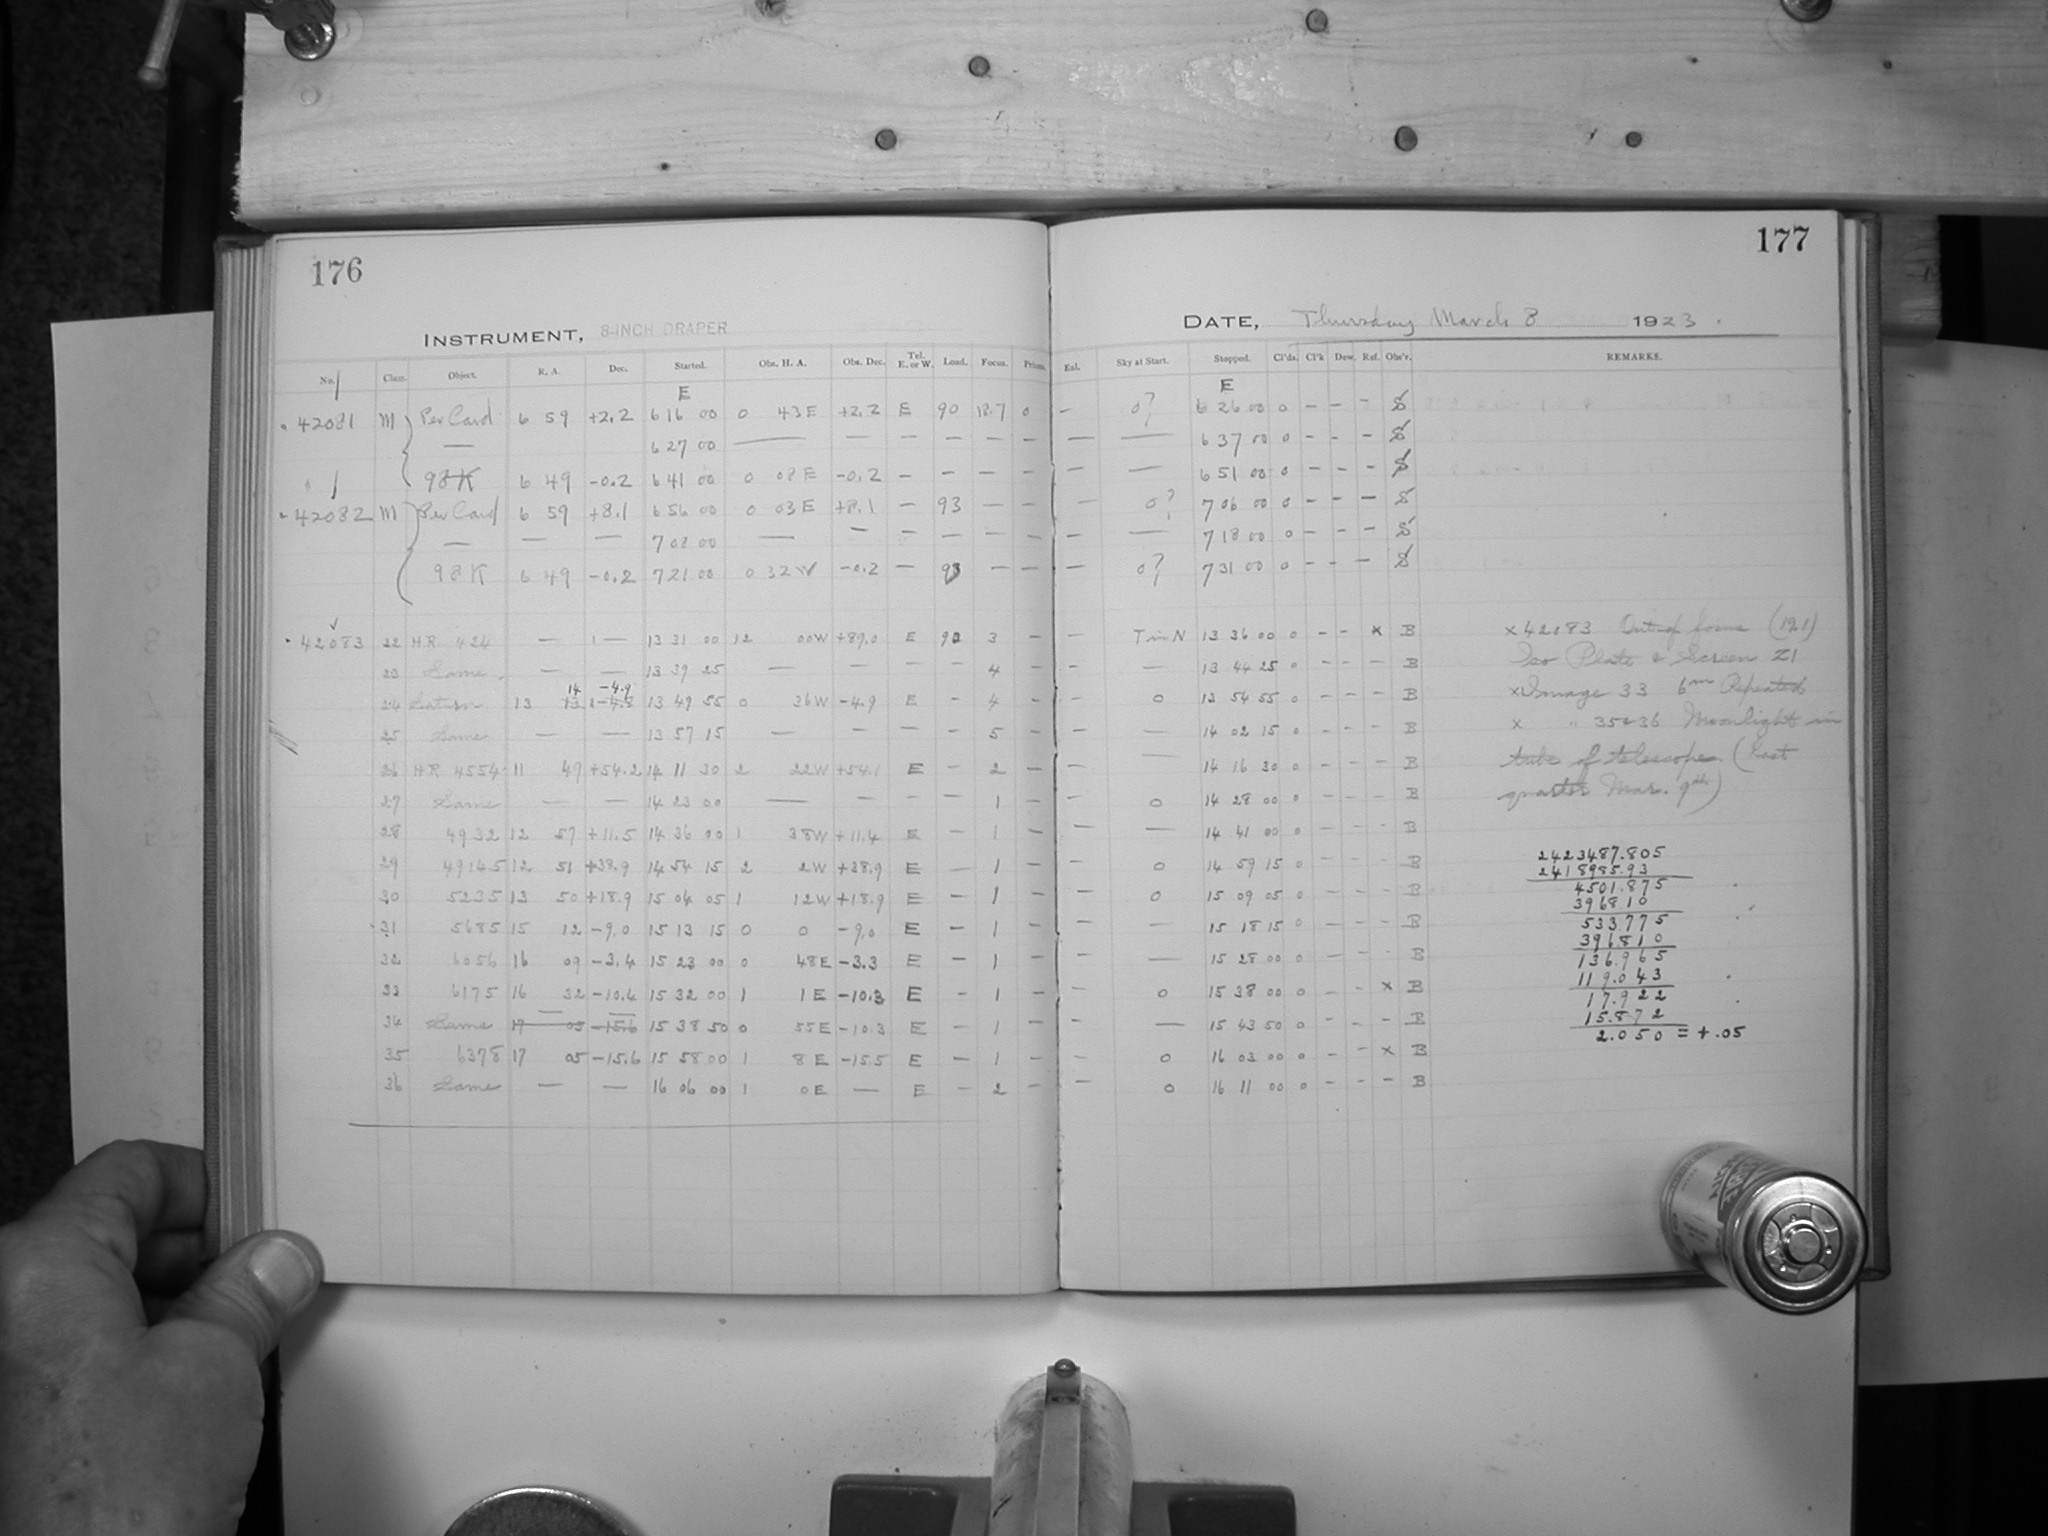 176
177
INSTRUMENT, 8-INCH DRAPER
DATE, Thursday March 8 1923.
No. Class. Object. R. A. Dec. Started. Obs. H. A. Obs. Dec. Tel. E. or W. Load. Focus. Prism. Eal. Sky at Start. Stopped. Cl'ds. Cl'k Dew. Ref. Obs'r. REMARKS.
E E
42081 M Per Card 6 59 +2.2 6 16 00 0 43 E +2.2 E 90 18.7 0 – 0? 6 26 00 0 – – – S
— 6 27 00 — — — — — — — — 6 37 00 0 – – – S
98 K 6 49 -0.2 6 41 00 0 08 E -0.2 – – – – — — 6 51 00 0 – – – S
42082 M Per Card 6 59 +8.1 6 56 00 0 03 E +8.1 – 93 – – — 0? 7 06 00 0 – – – S
— — — 7 08 00 — — – – – – — — 7 18 00 0 – – – S
98 K 6 49 -0.2 7 21 00 0 32 W -0.2 – 93 – – – 0? 7 31 00 0 – – – S
42083 22 H.R. 424 — 1— 13 31 00 12 00W +89.0 E 92 3 – – T in N 13 36 00 0 – – x B x 42083 Out of focus (191)
23 Same — — 13 39 25 — – – – 4 – – — 13 44 25 0 – – – B Iso Plate & Screen Z1
14 -4.9
24 Saturn 13 13 -4.8 13 49 55 0 36W -4.9 E – 4 – – 0 13 54 55 0 – – – B x Image 33 6m Repeated
25 Same — — 13 57 15 — – – – 5 – – — 14 02 15 0 – – – B x " 35&36 Moonlight in
26 H.R. 4554 11 49 +54.2 14 11 30 2 22W +54.1 E – 2 – – — 14 16 30 0 – – – B tube of telescope. (Last
27 Same — — 14 23 00 — – – – 1 – – 0 14 28 00 0 – – – B quarter Mar. 9th.)
28 4932 12 57 +11.5 14 36 00 1 38W +11.4 E – 1 – – — 14 41 00 0 – – – B
29 49145 12 51 +38.9 14 54 15 2 2W +38.9 E – 1 – – 0 14 59 15 0 – – – B
30 5235 13 50 +18.9 15 04 05 1 12W +18.9 E – 1 – – 0 15 09 05 0 – – – B
31 5685 15 12 -9.0 15 13 15 0 0 -9.0 E – 1 – – — 15 18 15 0 – – – B
32 6056 16 09 -3.4 15 23 00 0 48E -3.3 E – 1 – – — 15 28 00 0 – – – B
33 6175 16 32 -10.4 15 32 00 1 1E -10.3 E – 1 – – 0 15 38 00 0 – – x B
34 Same 17 05 -15.6 15 38 50 0 55E -10.3 E – 1 – – — 15 43 50 0 – – – B
35 6378 17 05 -15.6 15 58 00 1 8E -15.5 E – 1 – – 0 16 03 00 0 – – x B
36 Same — — 16 06 00 1 0E — E – 2 – – 0 16 11 00 0 – – – B
2423487.805
2418985.93
4501.875
396810
533.775
396810
136.965
119.043
17.922
15.872
2.050 = +.05